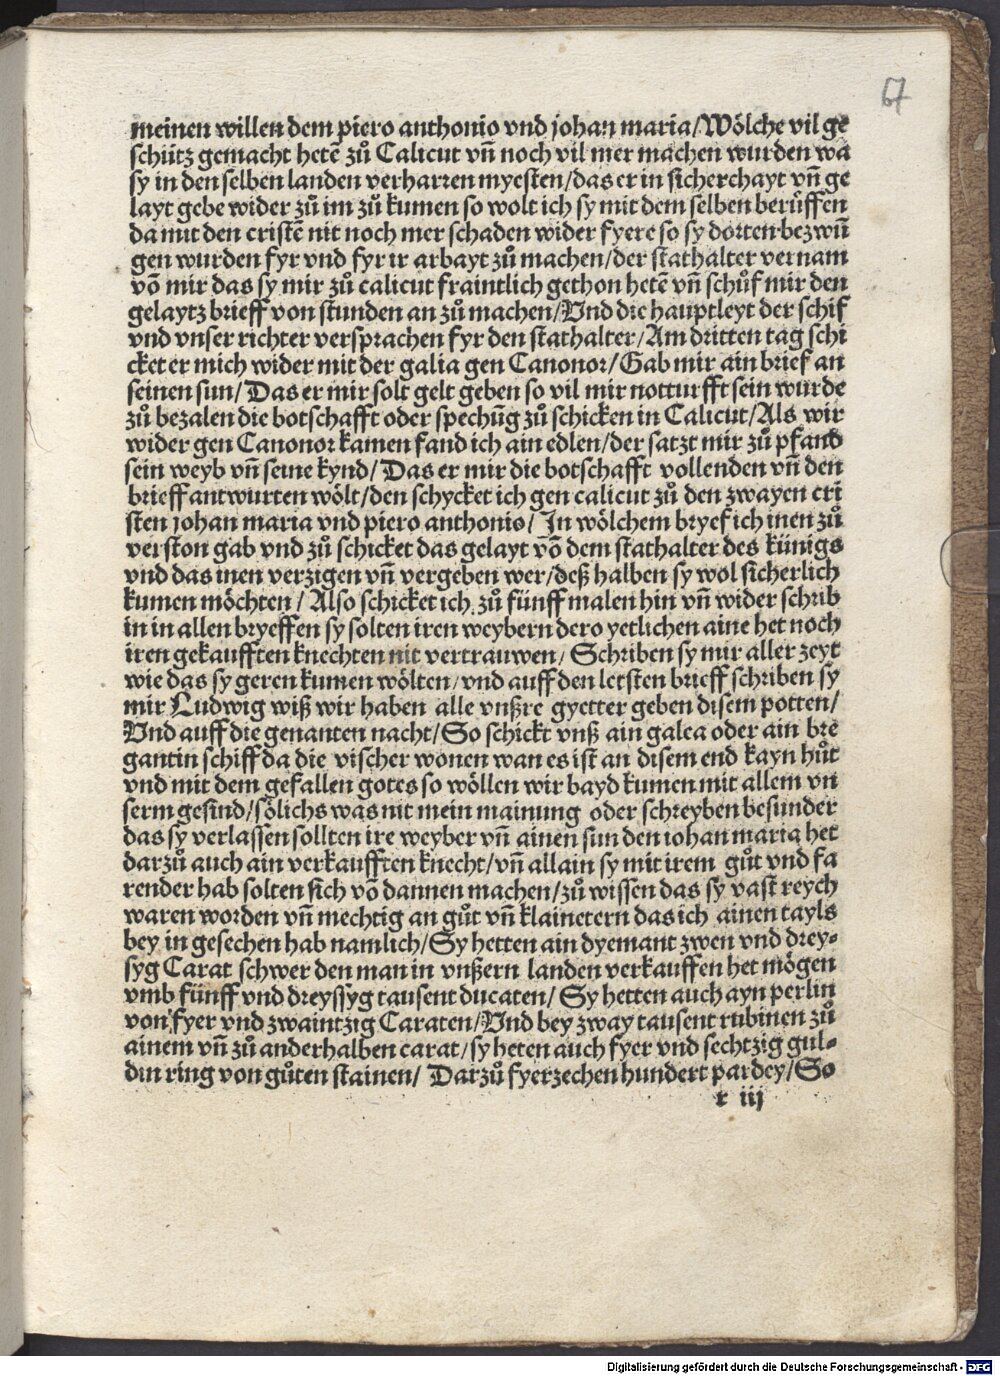 67
meinen willen dem piero anthonio vnd johan maria/Wölche vil ge
schütz gemacht hetẽ zů Calicut vñ noch vil mer machen wurden wa
sy in den selben landen verharren myesten/das er in sicherchayt vñ ge
layt gebe wider zů im zů kumen so wolt ich sy mit dem selben berůffen
da mit den cristẽ nit noch mer schaden wider fyere so sy dorten bezwũ
gen wurden fyr vnd fyr ir arbayt zů machen/der stathalter vernam
võ mir das sy mir zů calicut fraintlich gethon hetẽ vñ schůf mir den
gelaytz brieff von stunden an zů machen/Vnd die hauptleyt der schif
vnd vnser richter versprachen fyr den stathalter/Am dritten tag schi
cket er mich wider mit der galia gen Canonor/Gab mir ain brief an
seinen sun/Das er mir solt gelt geben so vil mir notturfft sein wurde
zů bezalen die botschafft oder spechũg zů schicken in Calicut/Als wir
wider gen Canonor kamen fand ich ain edlen/der satzt mir zů pfand
sein weyb vñ seine kynd/Das er mir die botschafft vollenden vñ den
brieff antwurten wölt/den schycket ich gen calicut zů den zwayen cri
sten johan maria vnd piero anthonio/In wölchem bryef ich inen zů
verston gab vnd zů schicket das gelayt võ dem stathalter des künigs
vnd das inen verzigen vñ vergeben wer/deß halben sy wol sicherlich
kumen möchten/Also schicket ich zů fünff malen hin vñ wider schrib
in in allen bryeffen sy solten iren weybern dero yetlichen aine het noch
iren gekaufften knechten nit vertrauwen/Schriben sy mir aller zeyt
wie das sy geren kumen wölten/vnd auff den letsten brieff schriben sy
mir Ludwig wiß wir haben alle vnßre gyetter geben disem potten/
Vnd auff die genanten nacht/So schickt vnß ain galea oder ain bre
gantin schiff da die vischer wonen wan es ist an disem end kayn hůt
vnd mit dem gefallen gotes so wöllen wir bayd kumen mit allem vn
serm gesind/sölichs was nit mein mainung oder schreyben besunder
das sy verlassen sollten ire weyber vñ ainen sun den iohan maria het
darzů auch ain verkaufften knecht/vñ allain sy mit irem gůt vnd fa
render hab solten sich võ dannen machen/zů wissen das sy vast reych
waren worden vñ mechtig an gůt vñ klainetern das ich ainen tayls
bey in gesechen hab namlich/Sy hetten ain dyemant zwen vnd drey⸗
syg Carat schwer den man in vnßern landen verkauffen het mögen
vmb fünff vnd dreyssyg tausent ducaten/Sy hetten auch ayn perlin
von fyer vnd zwaintzig Caraten/Vnd bey zway tausent rubinen zů
ainem vñ zů anderhalben carat/sy heten auch fyer vnd sechtzig gul⸗
din ring von gůten stainen/Darzů fyerzechen hundert pardey/So
r iij
Digitalisierung gefördert durch die Deutsche Forschungsgemeinschaft - DFG